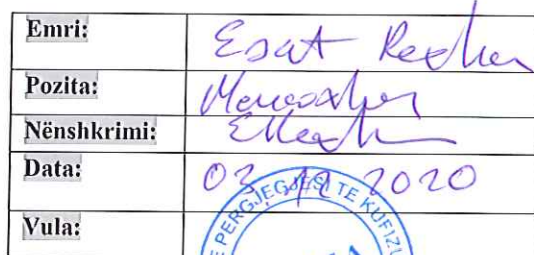 Emri: Esat Rexha
Pozita: Menaxher
Nënshkrimi:
Data: 03 2020
Vula:
E PERGJEGJESI TE KUFIZU